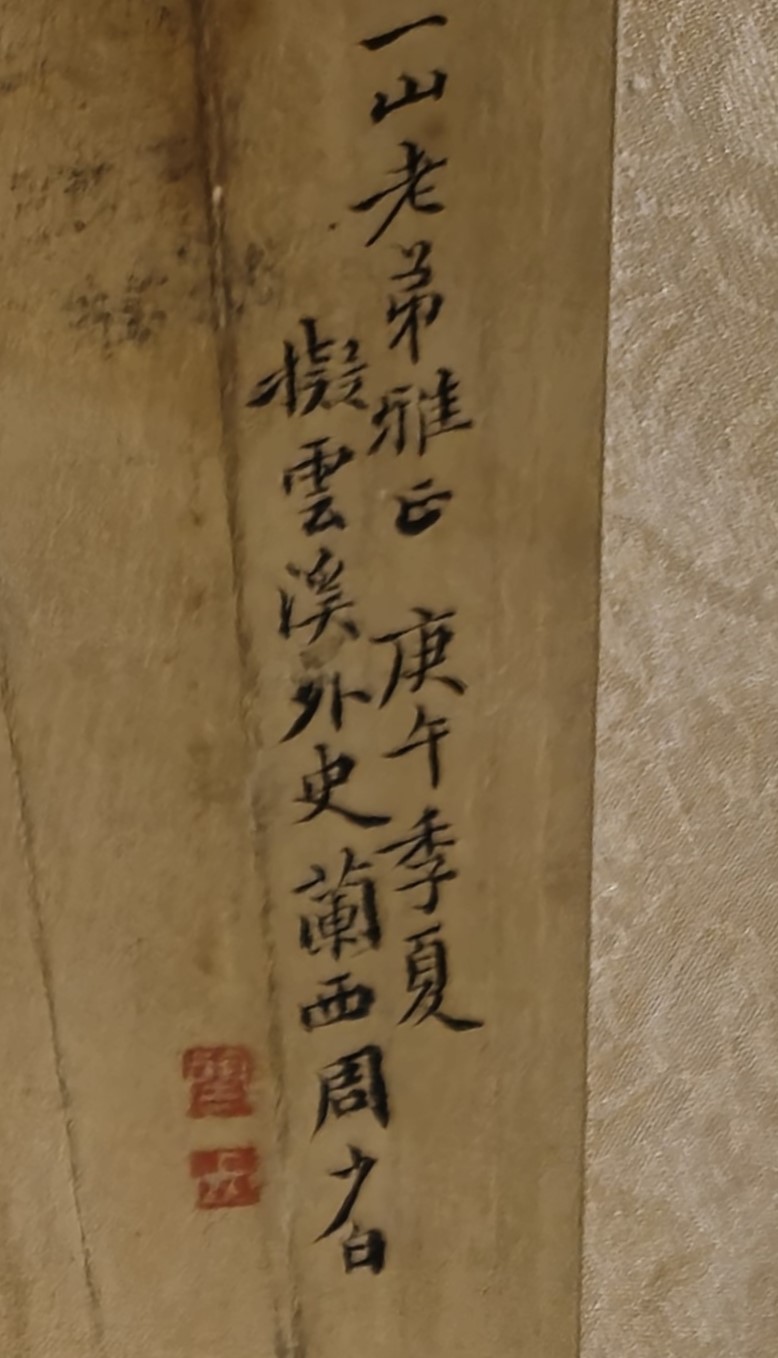 一山老弟雅正 庚午季夏
擬雲溪外史 蘭西周少白